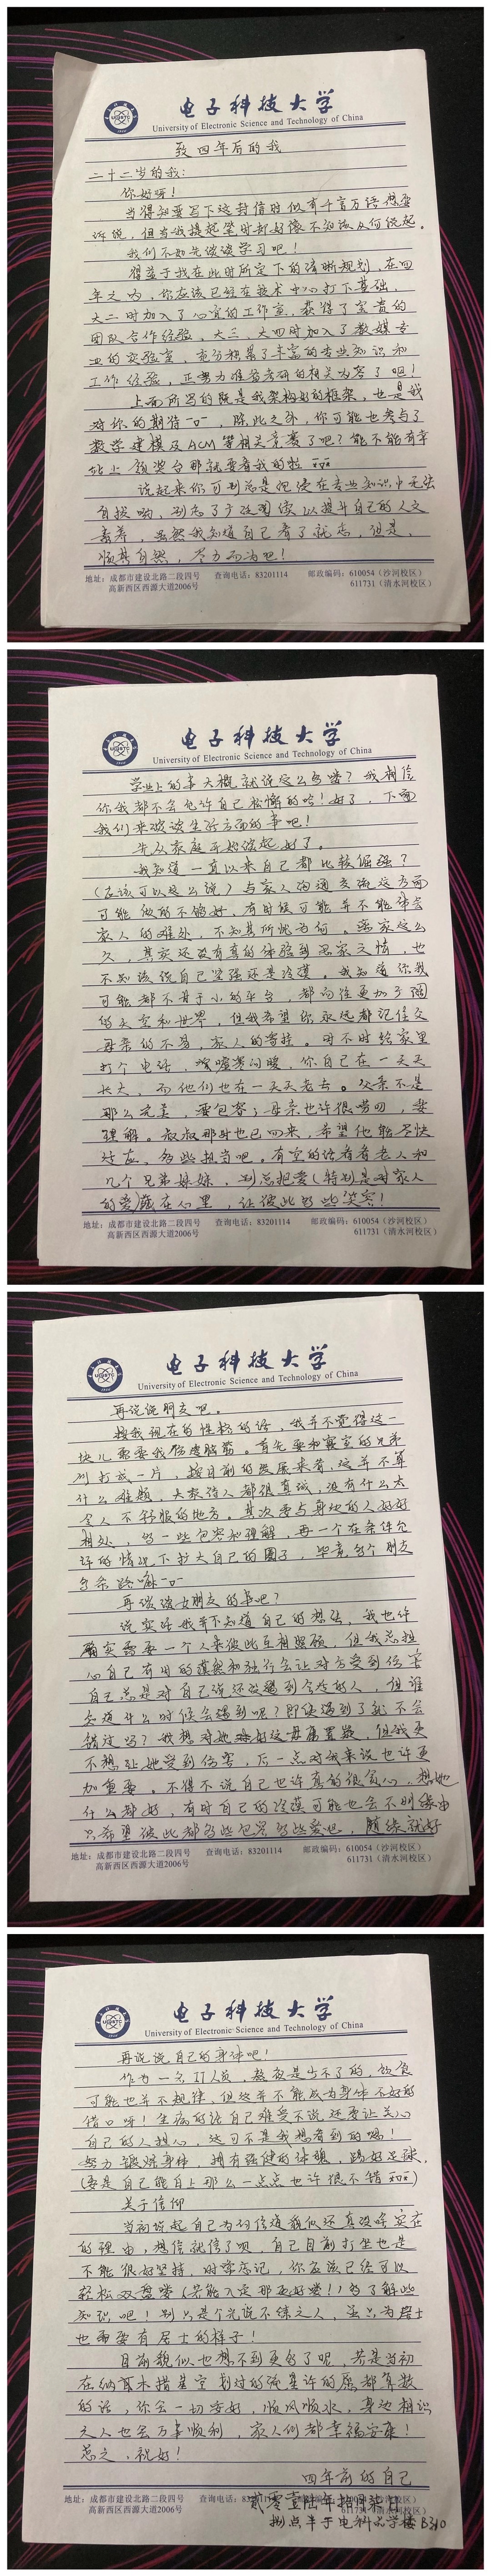 电子科技大学
University of Electronic Science and Technology of China
致 四年后的我
二十二岁的我：
你好呀！
当得知要写下这封信时似有千言万语想要
诉说，但当我提起笔时却好像不知该从何说起。
我们不如先谈谈学习吧！
得益于我在此时所定下的清晰规划，在四
年之内，你应该已经在技术中心打下基础，
大二时加入了心宜的工作室，获得了宝贵的
团队合作经验，大三、大四时加入了数媒专
业的实验室，充分积累了丰富的专业知识和
工作经验，正努力准备考研的相关内容了吧！
上面所写的既是我架构好的框架，也是我
对你的期待，除此之外，你可能也参与了
数学建模及ACM等相关竞赛了吧？能不能有幸
站上领奖台那就要看我的啦
说起来你可别总是沉浸在专业知识中无法
自拔哟，别忘了广泛阅读以提升自己的人文
素养，虽然我知道自己看了就忘，但是，
顺其自然，尽力而为吧！
地址：成都市建设北路二段四号 查询电话：83201114 邮政编码：610054（沙河校区）
高新西区西源大道2006号 611731（清水河校区）
电子科技大学
University of Electronic Science and Technology of China
学业上的事大概就说这么多喽？我相信
你我都不会允许自己松懈的哈！好了，下面
我们来谈谈生活方面的事吧！
先从家庭开始说起好了。
我知道一直以来自己都比较倔强？
（应该可以这么说）与家人沟通交流这方面
可能做的不够好，有时候可能并不能体会
家人的难处，不知其所忧为何。离家这么
久，其实还没有真的体验到思家之情，也
不知该说自己坚强还是冷漠。我知道你我
可能都不甘于小的平台，都向往更加广阔
的天空和世界，但我希望你永远都记住父
母亲的不易，家人的牵挂。时不时给家里
打个电话，嘘嘘寒问暖，你自己在一天天
长大，而他们也在一天天老去。父亲不是
那么完美，要包容；母亲也许很唠叨，要
理解。叔叔那时也已回来，希望他能尽快
适应，多些担当吧。有空的话看看老人和
几个兄弟姊妹，别总把爱（特别是对家人
的爱）藏在心里，让彼此多些笑容！
地址：成都市建设北路二段四号 查询电话：83201114 邮政编码：610054（沙河校区）
高新西区西源大道2006号 611731（清水河校区）
电子科技大学
University of Electronic Science and Technology of China
再说说朋友吧。
按我现在的性格的话，我并不觉得这一
块儿需要我伤透脑筋。首先要和寝室的兄弟
们打成一片，按目前的发展来看，这并不算
什么难题，大家待人都很真诚，没有什么太
令人不舒服的地方。其次要与身边的人好好
相处，多一些包容和理解，再一个在条件允
许的情况下扩大自己的圈子，毕竟多个朋友
多条路嘛
再谈谈女朋友的事吧？
说实话我并不知道自己的想法，我也许
确实需要一个人来彼此互相照顾，但我总担
心自己有时的漠然和独行会让对方受到伤害
自己总是对自己说还没遇到合适的人，但谁
知道什么时候会遇到呢？即使遇到了就不会
错过吗？我想对她好这毋庸置疑，但我更
不想让她受到伤害，后一点对我来说也许更
加重要。不得不说自己也许真的很贪心，想她
什么都好，有时自己的冷漠可能也会不明缘由
只希望彼此都多些包容多些爱吧，随缘就好
地址：成都市建设北路二段四号 查询电话：83201114 邮政编码：610054（沙河校区）
高新西区西源大道2006号 611731（清水河校区）
电子科技大学
University of Electronic Science and Technology of China
再说说自己的身体吧！
作为一名IT人员，熬夜是少不了的，饮食
可能也并不规律，但这并不能成为身体不好的
借口呀！生病的话自己难受不说还要让关心
自己的人担心，这可不是我想看到的喝！
努力锻炼身体，拥有强健的体魄，踢好足球，
（要是自己能白上那么一点点也许很不错）
关于信仰
当初说起自己为何信道貌似还真没啥实在
的理由，想信就信了呗，自己目前打坐也是
不能很好坚持，时常忘记，你应该已经可以
轻松双盘喽（若能入定那更好喽！）多了解些
知识吧！别只是个光说不练之人，虽只为居士
也需要有居士的样子！
目前貌似也想不到更多了呢，若是当初
在纳耳木措星空划过的流星许的愿都算数
的话，你会一切安好，顺风顺水，身边相识
之人也会万事顺利，家人们都幸福安康！
总之，祝好！
四年前的自己
贰零壹陆年拾月柒日
捌点半于电科品学楼B310
地址：成都市建设北路二段四号 查询电话：83201114
高新西区西源大道2006号